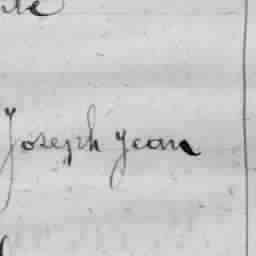 Joseph Jean